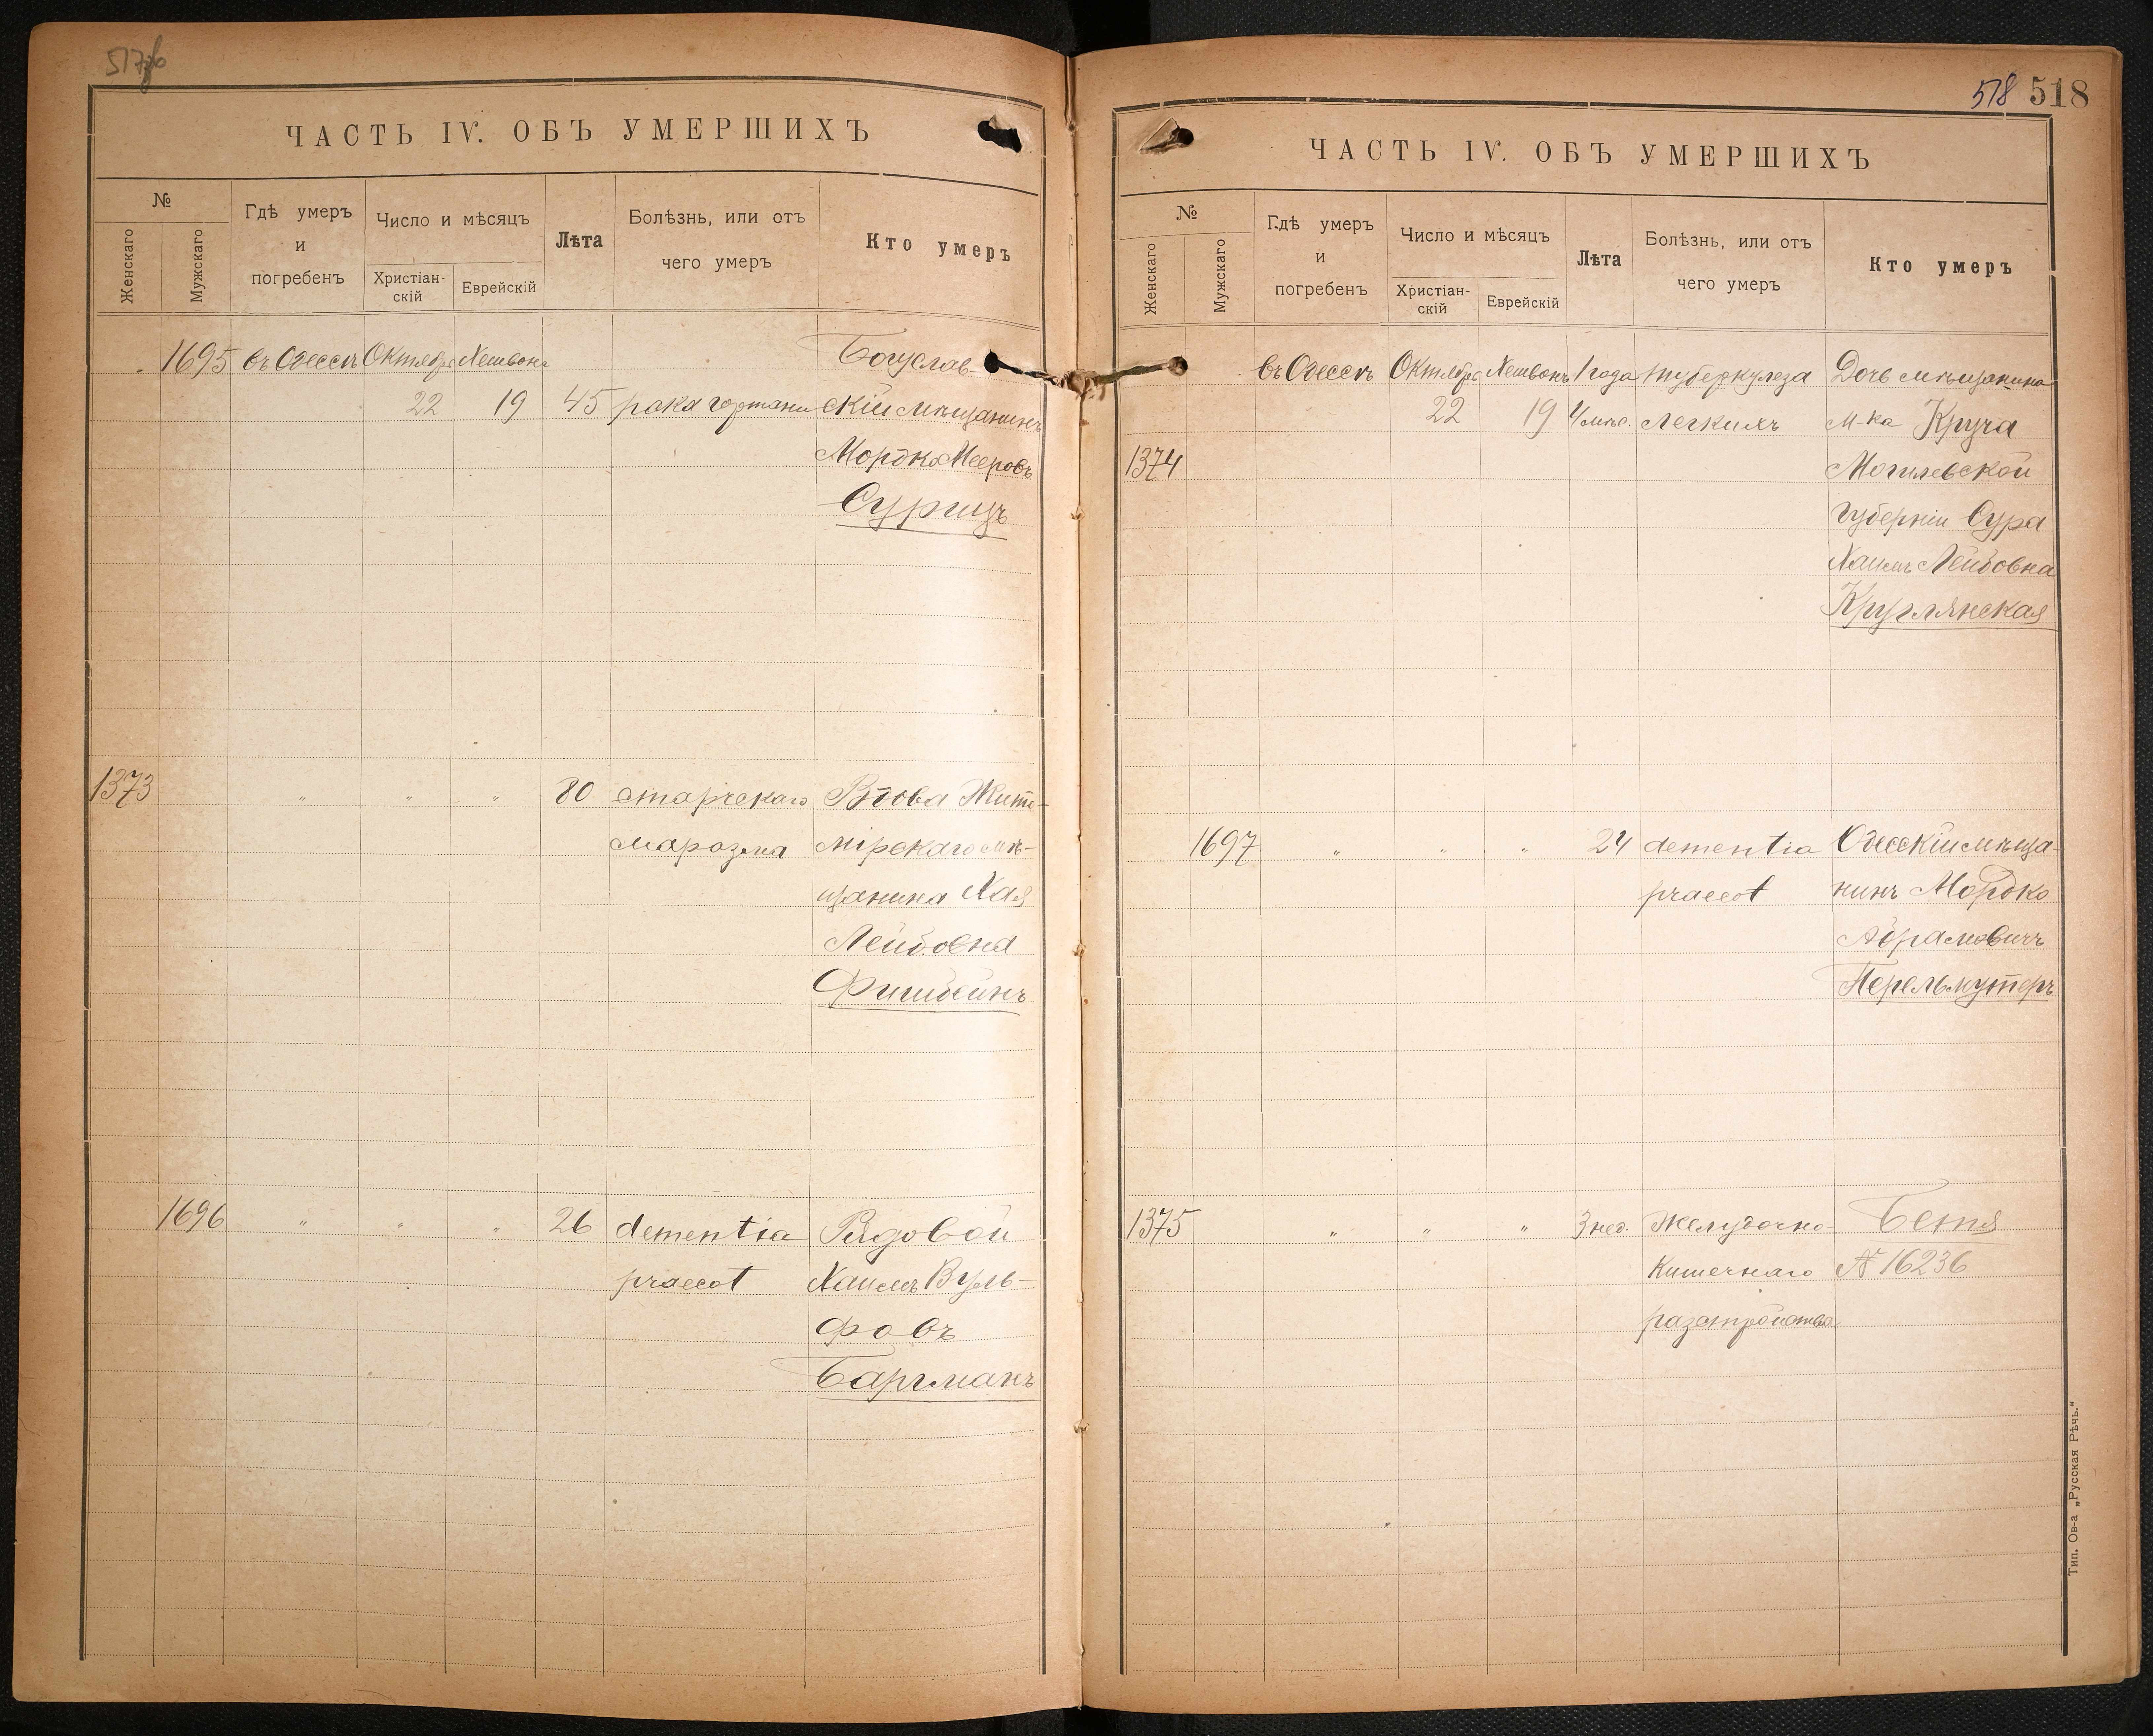 517об
ЧАСТЬ IV. ОБЪ УМЕРШИХЪ
№
Женскаго
Мужскаго
Гдѣ умеръ
и
погребенъ
Число и мѣсяцъ
Христіан-
скій
Еврейскій
Лѣта
Болѣзнь, или отъ
чего умеръ
Кто умеръ
1695 въ Одессѣ Октября Хешвонъ Богуслав
22 19 45 рака гортани скій мѣщанинъ
Мордко Мееровъ
Сурицъ
1373 " " " 80 старческаго Вдова Жито-
маразма мірскаго мѣ-
щанина Хая
Лейбовна
Фишбейнъ
1696 " " " 26 dementia Рядовой
praecot Хаимъ Вуль-
фовъ
Баргманъ
518 518
ЧАСТЬ IV. ОБЪ УМЕРШИХЪ
№
Женскаго
Мужскаго
Гдѣ умеръ
и
погребенъ
Число и мѣсяцъ
Христіан-
скій
Еврейскій
Лѣта
Болѣзнь, или отъ
чего умеръ
Кто умеръ
въ Одессѣ Октября Хешвонъ 1 года туберкулеза Дочь мѣщанина
22 19 4 мѣс. легкихъ м-ка Круча
1374 Могилевской
губерніи Сура
Хаимъ Лейбовна
Круглянская
1697 " " " 24 dementia Одесскій мѣща-
praecot нинъ Мордко
Абрамовичъ
Перельмутеръ
1375 " " " 3 нед. Желудочно- Бетя
кишечнаго № 16236
разстройства
Тип. Ов-а „Русская Рѣчь.“